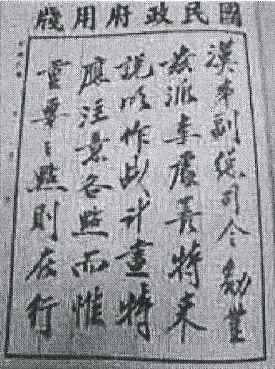 國民政府用牋
漢卿副總司令勛鑒
茲派特來
說明作戰計畫特
應注意各點而惟
重要之點則在行